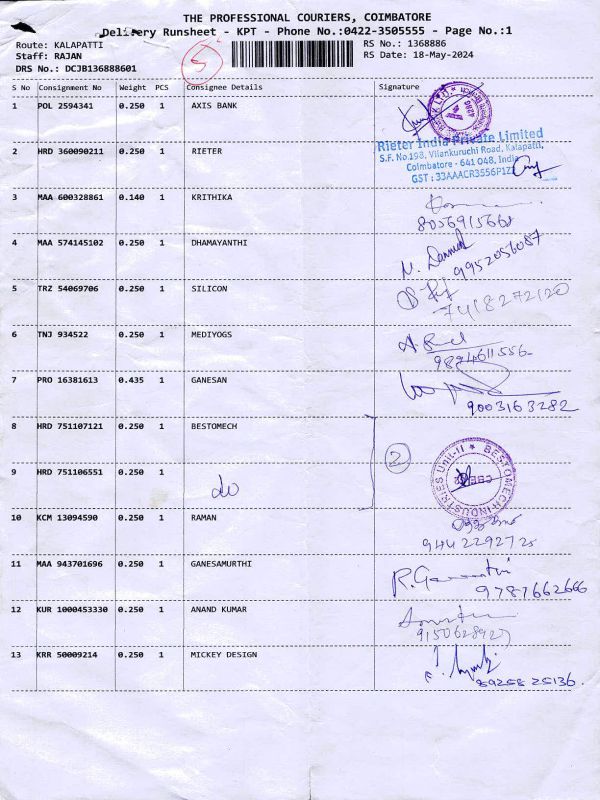 THE PROFESSIONAL COURIERS, COIMBATORE
Delivery Runsheet - KPT - Phone No.:0422-3505555 - Page No.:1
Route: KALAPATTI
Staff: RAJAN
DRS No.: DCJB136888601
5
RS No.: 1368886
RS Date: 18-May-2024
S No Consignment No Weight PCS Consignee Details Signature
1 POL 2594341 0.250 1 AXIS BANK
2 HRD 360090211 0.250 1 RIETER
Rieter India Private Limited
S.F. No.198, Vilankuruchi Road, Kalapatti,
Coimbatore - 641 048, India
GST : 33AAACR3556P1Z
3 MAA 600328861 0.140 1 KRITHIKA
8056915668
4 MAA 574145102 0.250 1 DHAMAYANTHI
9952056087
5 TRZ 54069706 0.250 1 SILICON
7418272120
6 TNJ 934522 0.250 1 MEDIYOGS
9894611556
7 PRO 16381613 0.435 1 GANESAN
9003163282
8 HRD 751107121 0.250 1 BESTOMECH
2
BESTOMECH INDUSTRIES Unit-II
9 HRD 751106551 0.250 1 do
10 KCM 13094590 0.250 1 RAMAN
9442292725
11 MAA 943701696 0.250 1 GANESAMURTHI
9787662666
12 KUR 1000453330 0.250 1 ANAND KUMAR
9150628927
13 KRR 50009214 0.250 1 MICKEY DESIGN
89258 25136